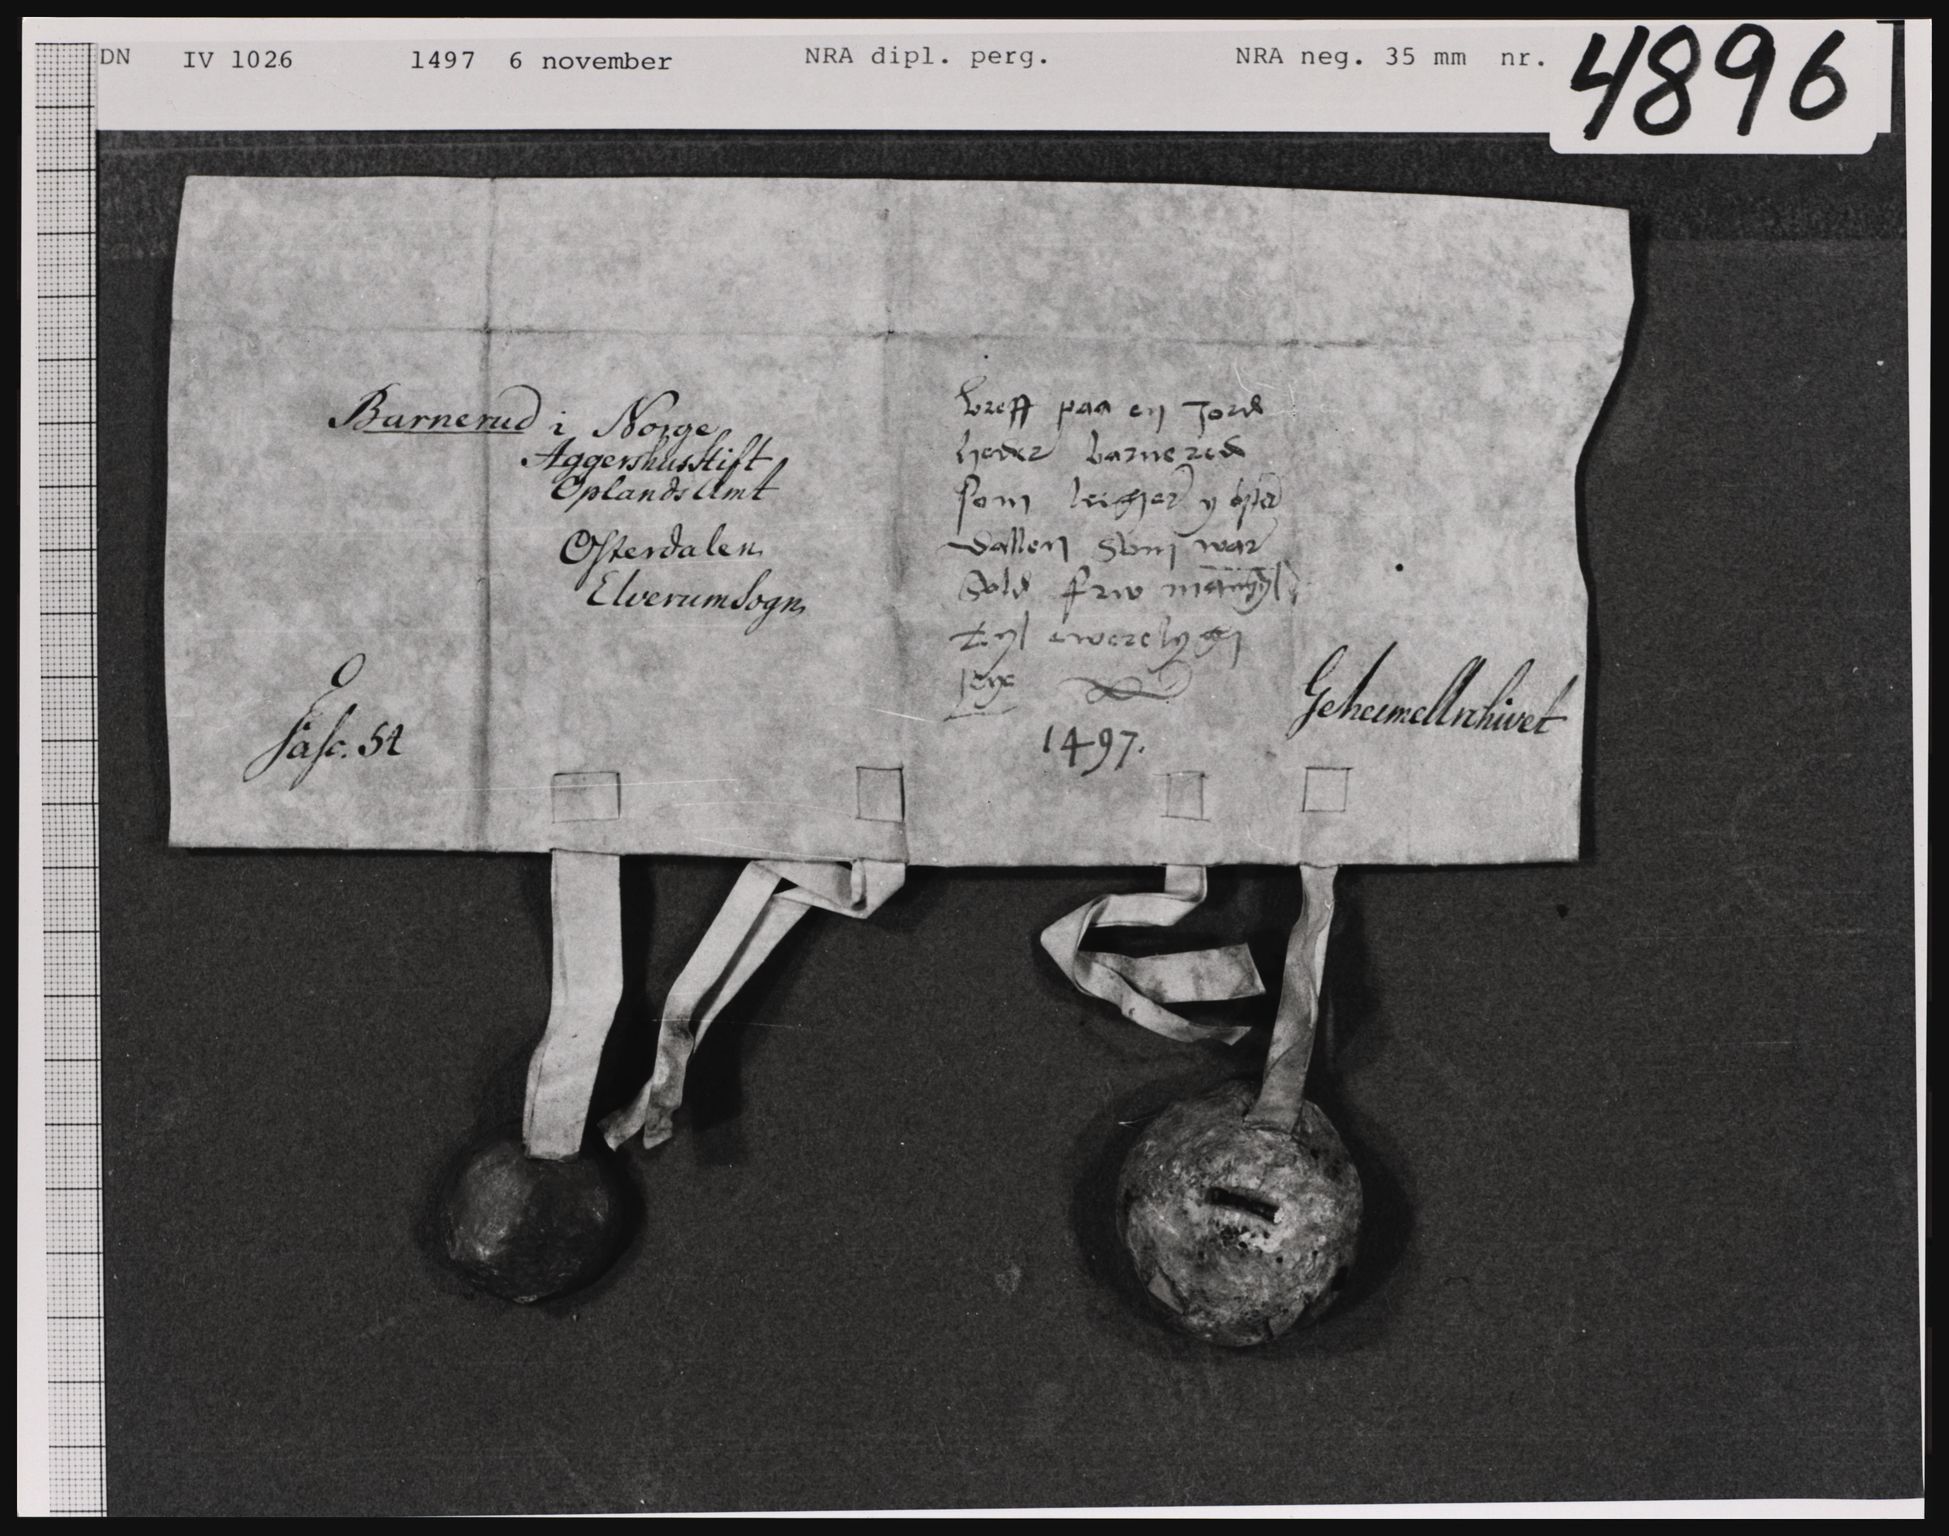 DN IV 1026 1497 6 november NRA dipl. perg. NRA neg. 35 mm nr. 4896
Barnerud i Norge
AggershusStift
OplandsAmt
Østerdalen
ElverumSogn
Fasc. 51
breff paa en Jord
heder barnered
som leigger y øster
dallen som war
Sold frw
tyl ewerelygh
1497.
GeheimeArchivet